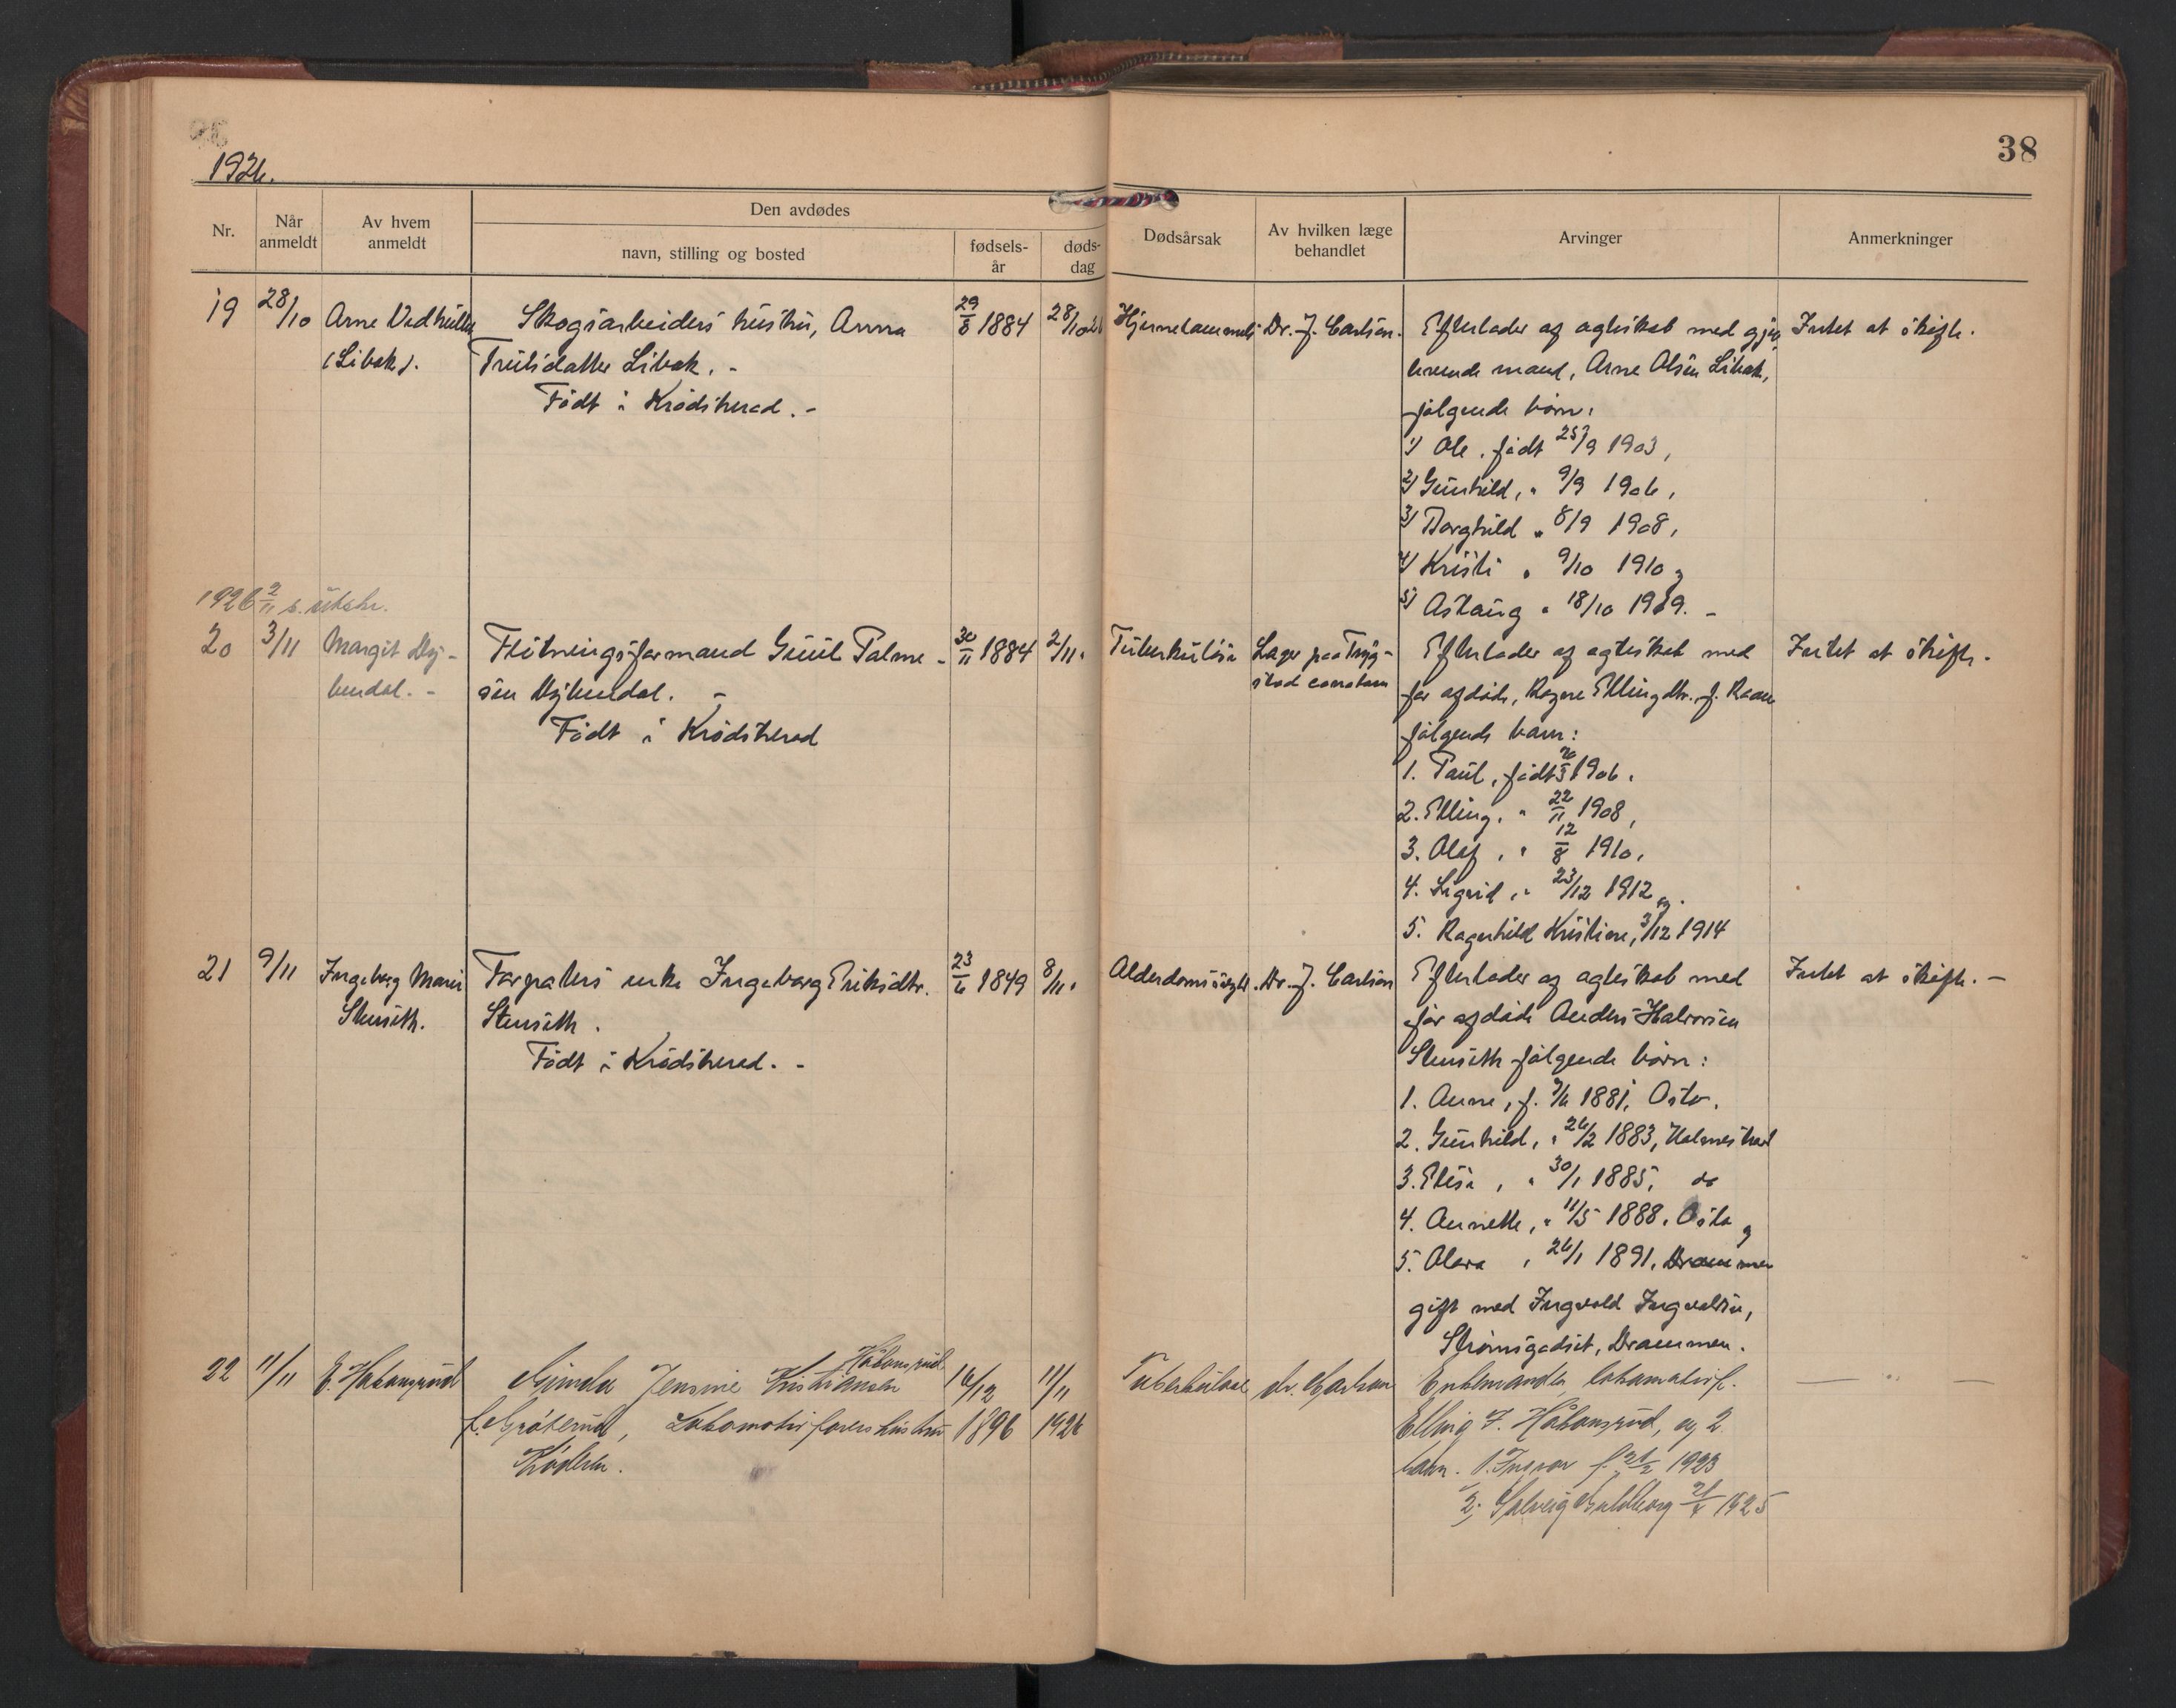 38
1926.
Nr.
Når anmeldt
Av hvem anmeldt
Den avdødes
navn, stilling og bosted
fødsels-år
døds-dag
Dødsårsak
Av hvilken læge behandlet
Arvinger
Anmerkninger
19 28/10 Arne Vedhullet Skogsarbeiders hustru, Anna 29/8 1884 28/10 26 Dr. J. Carlsen. Efterlader af ægteskab med gjen- Intet at skifte.
(Libak). Trulsdatter Libak. - levende mand, Arne Olsen Libak,
Født i Krødsherad. - følgende børn:
1) Ole, født 25/9 1903,
2) Gunhild, " 9/9 1906,
3) Borghild " 8/9 1908,
4) Kristi " 9/10 1910 og
5) Aslaug " 18/10 1919. -
1926 2/11 s. utskr.
20 3/11 Margit Fløtningsformand Guul Palme- 30/11 1884 2/11. Tuberkulose Læger paa Tryg- Efterlader af ægteskab med Intet at skifte.
bendal. - sen . - stad før afdøde, Ragne Ellingdtr. f. Raaen
Født i Krødsherad følgende børn:
1. Paul, født 1906.
2. Elling, " 22/11 1908,
3. Olaf, " 12/8 1910,
4. Sigrid, " 23/12 1912 og.
5. Ragnhild Kristine, 3/12 1914
21 9/11 Ingeborg Marie Forpakters enke Ingeborg Eriksdtr. 23/6 1849 8/11. Alderdomssvagh. Dr. J. Carlsen Efterlader af ægteskab med Intet at skifte. -
Stenseth. Stenseth. før afdøde Anders Halvorsen
Født i Krødsherad. - Stenseth følgende børn:
1. Anne, f. 9/6 1881, Oslo.
2. Gunhild, " 26/2 1883, Holmestrand
3. Elise, " 30/1 1885, do
4. Annette, " 11/5 1888, Oslo og
5. Olava, 26/1 1891, Drammen
gift med Ingvald Ingvaldsen,
Strømsgodset, Drammen.
Håkonsrud
22 11/11 E. Håkonsrud Gunda Jensine Kristiansen 16/12 11/11 Tuberkulose dr. Carlsen Enkemanden lokomotivf. — " —
f. Grøterud, Lokomotivførers hustru 1896 1926 Elling F. Håkonsrud, og 2
Krøderen. barn. 1. Ingvar f. 21/2 1923
2; Solveig 1925